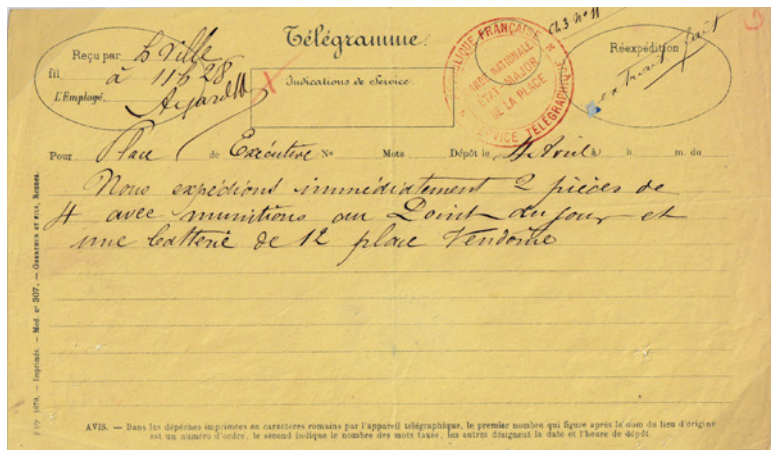 Télégramme.
Ch. 3 N° 11
Reçu par h. Ville
fil à 11 h 28
L'Employé,
Indications de Service.
RÉPUBLIQUE FRANÇAISE
GARDE NATIONALE
ÉTAT-MAJOR
DE LA PLACE
SERVICE TÉLÉGRAPHIQUE
Réexpédition
extrait fait
Pour Place de Exécutive N° Mots Dépôt le 4 Avril à h. m. du
Nous expédions immédiatement 2 pièces de
4 avec munitions au Point du jour et
une batterie de 12 place Vendôme
1870. — Imprimés. — Mod. n° 307. — OBERTHUR ET FILS, Rennes.
AVIS. — Dans les dépêches imprimées en caractères romains par l'appareil télégraphique, le premier nombre qui figure après le nom du lieu d'origine
est un numéro d'ordre, le second indique le nombre des mots taxés, les autres désignent la date et l'heure de dépôt.